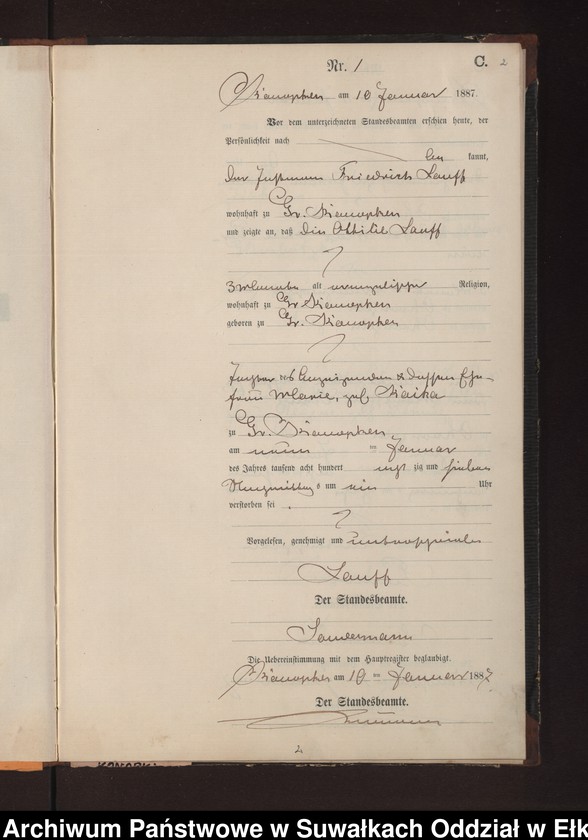 Nr. 1
C. 2
am 10 Januar 1887.
Vor dem unterzeichneten Standesbeamten erschien heute, der
Persönlichkeit nach
be kannt,
der Friedrich Lauff
wohnhaft zu Gr.
und zeigte an, daß die Ottilie Lauff
3 Monate alt evangelischer Religion,
wohnhaft zu Gr.
geboren zu Gr.
Tochter des Anzeigenden & dessen Ehe-
frau Marie,
zu Gr.
am neun ten Januar
des Jahres tausend acht hundert acht zig und sieben
Nachmittags um ein Uhr
verstorben sei.
Vorgelesen, genehmigt und unterschrieben
Lauff
Der Standesbeamte.
Die Uebereinstimmung mit dem Hauptregister beglaubigt.
am 10 ten Januar 1887
Der Standesbeamte.
2
Archiwum Państwowe w Suwałkach Oddział w Ełk